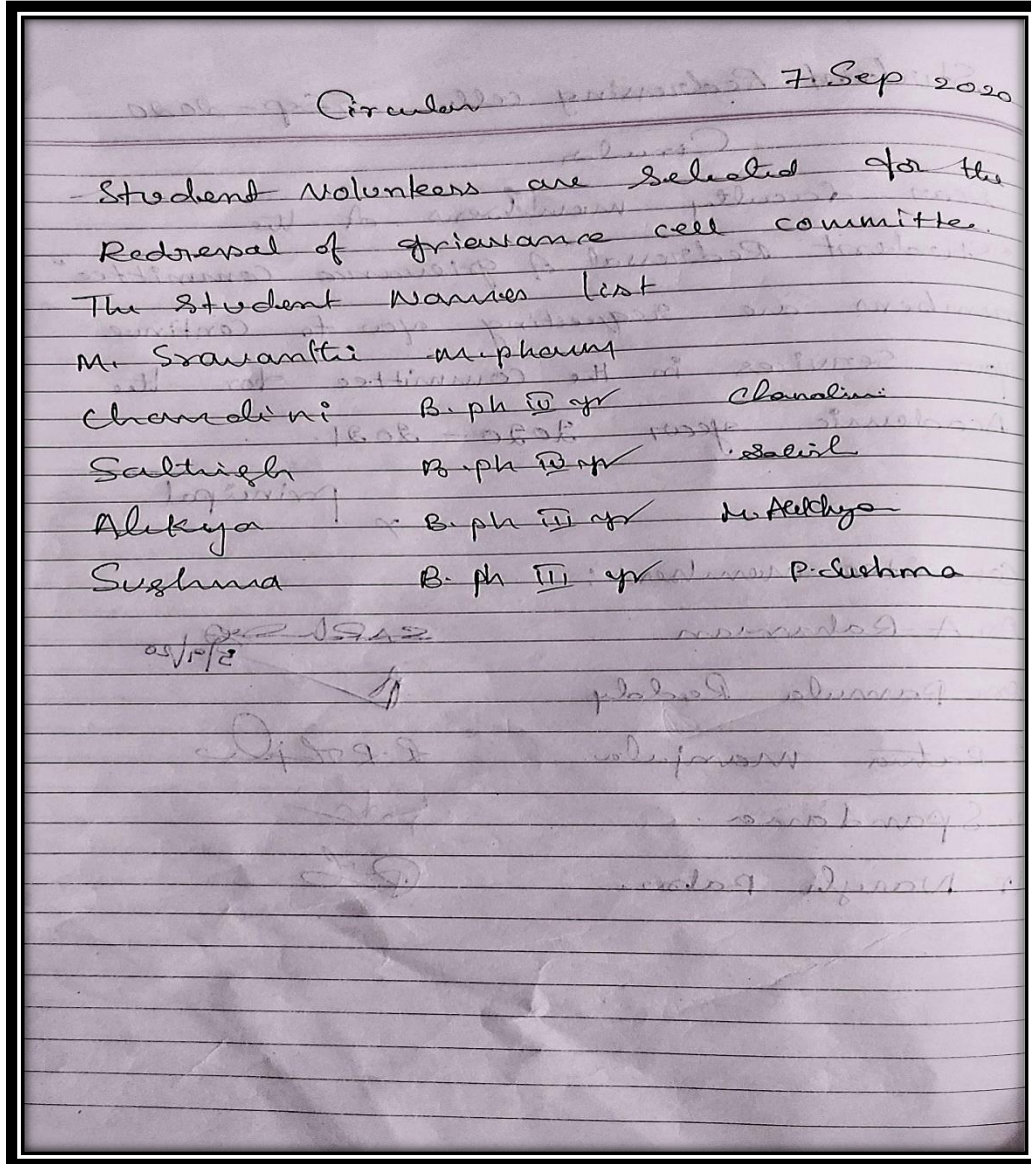 7. Sep 2020
Circular
Student Volunteers are Selected for the
Redressal of grievance cell committee.
The Student Names list
M. Sravanthi M.pharm
Chandini B. ph IV yr Chandini
Sathish B. ph IV yr
Alekya B. ph III yr M. Alekhya
Sushma B. ph III yr P. Sushma